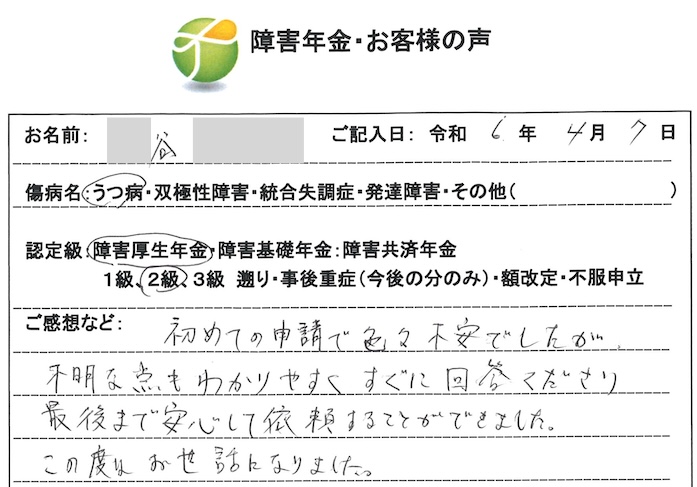 障害年金・お客様の声
お名前: 谷 ご記入日: 令和 6 年 4月 7 日
傷病名:うつ病・双極性障害・統合失調症・発達障害・その他( )
認定級:障害厚生年金・障害基礎年金:障害共済年金
1級、2級、3級 遡り・事後重症(今後の分のみ)・額改定・不服申立
ご感想など: 初めての申請で色々不安でしたが、
不明な点もわかりやすくすぐに回答くださり
最後まで安心して依頼することができました。
この度はお世話になりました。